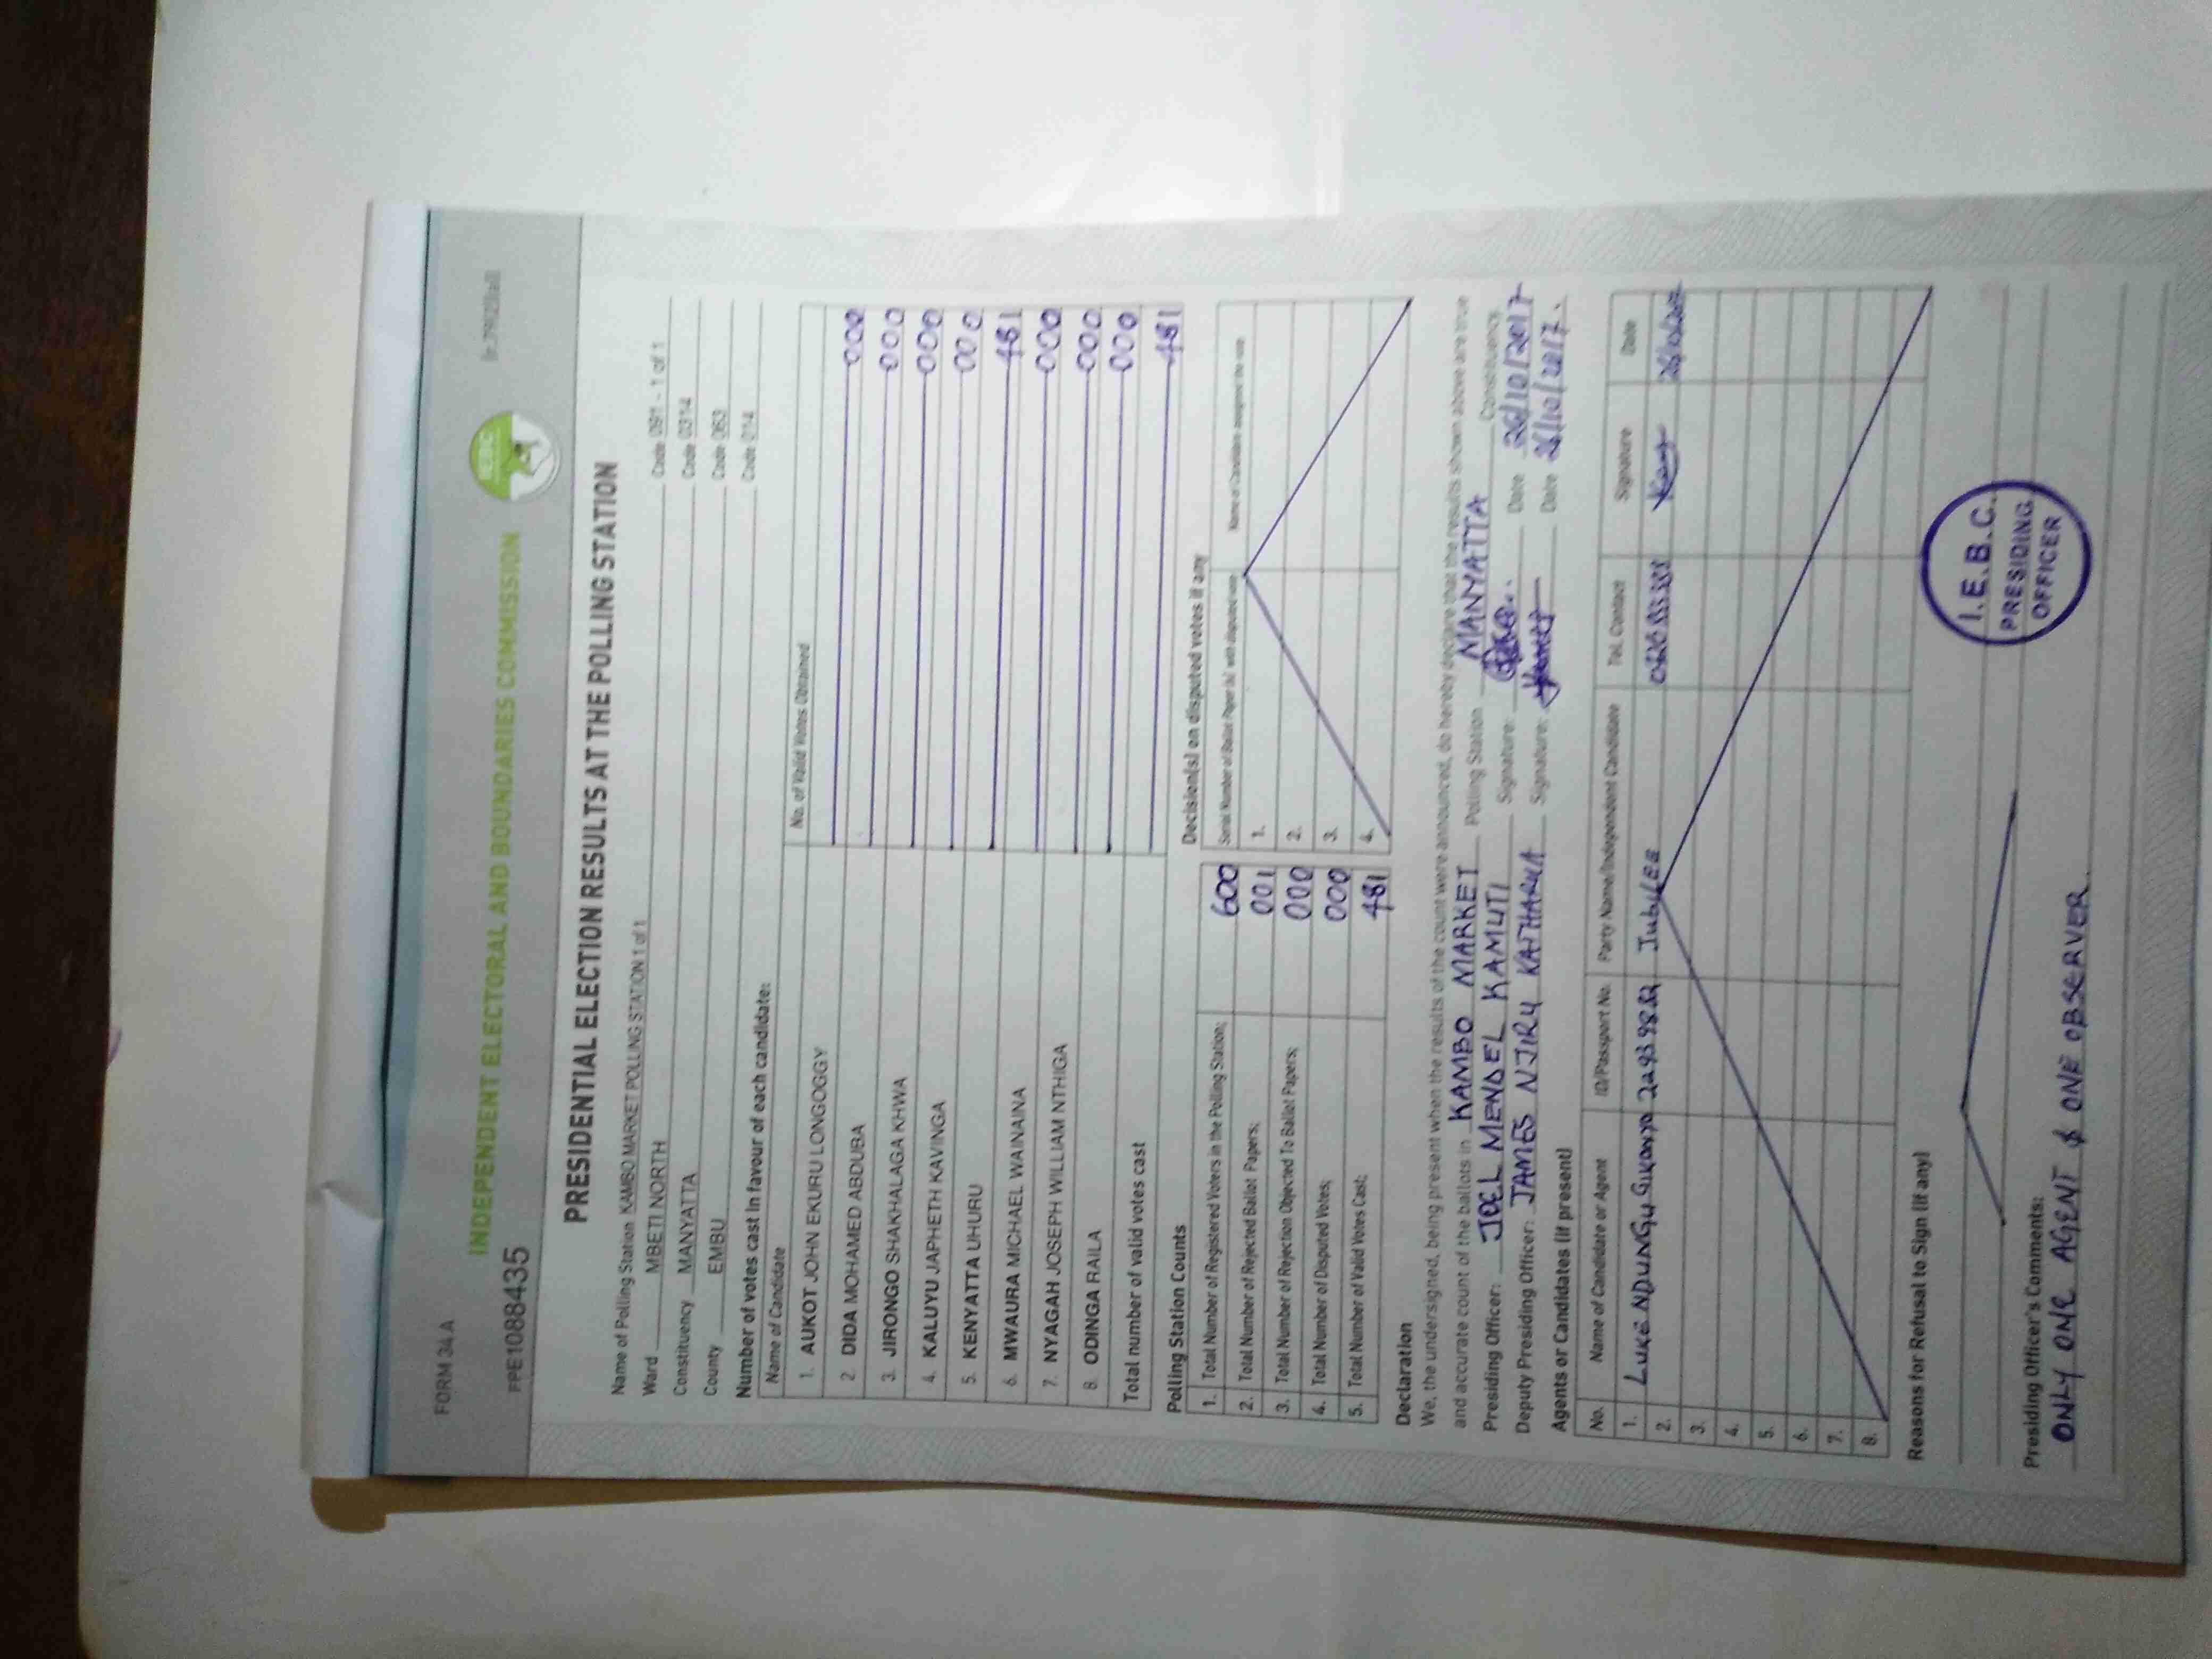 FORM 34A
INDEPENDENT ELECTORAL AND BOUNDARIES COMMISSION
IEBC
PPE1088435
PRESIDENTIAL ELECTION RESULTS AT THE POLLING STATION
Name of Polling Station KAMBO MARKET POLLING STATION 1 of 1 Code 091 - 1 of 1
Ward MBETI NORTH Code 0314
Constituency MANYATTA Code 063
County EMBU Code 014
Number of votes cast in favour of each candidate:
Name of Candidate No. of Valid Votes Obtained
1. AUKOT JOHN EKURU LONGOGGY 000
2 DIDA MOHAMED ABDUBA 000
3. JIRONGO SHAKHALAGA KHWA 000
4. KALUYU JAPHETH KAVINGA 000
5. KENYATTA UHURU 481
6. MWAURA MICHAEL WAINAINA 000
7. NYAGAH JOSEPH WILLIAM NTHIGA 000
8. ODINGA RAILA 000
Total number of valid votes cast 481
Polling Station Counts
Decision(s) on disputed votes if any
1. Total Number of Registered Voters in the Polling Station; 600
2. Total Number of Rejected Ballot Papers; 001
3. Total Number of Rejection Objected To Ballot Papers; 000
4. Total Number of Disputed Votes; 000
5. Total Number of Valid Votes Cast; 481
Serial Number of Ballot Paper (s) with disputed vote Name of Candidate assigned the vote
1.
2.
3.
4.
Declaration
We, the undersigned, being present when the results of the count were announced, do hereby declare that the results shown above are true
and accurate count of the ballots in KAMBO MARKET Polling Station MANYATTA Constituency
Presiding Officer: JOEL MENDEL KAMUTI Signature: Date 26/10/2017
Deputy Presiding Officer: JAMES NJIRU KATHARUA Signature: Date 26/10/2017.
Agents or Candidates (if present)
No. Name of Candidate or Agent ID/Passport No. Party Name/Independent Candidate Tel. Contact Signature Date
1. LUKE NDUNGU Jubilee
2.
3.
4.
5.
6.
7.
8.
Reasons for Refusal to Sign (if any)
I.E.B.C.
PRESIDING
OFFICER
Presiding Officer's Comments:
ONLY ONE AGENT & ONE OBSERVER.